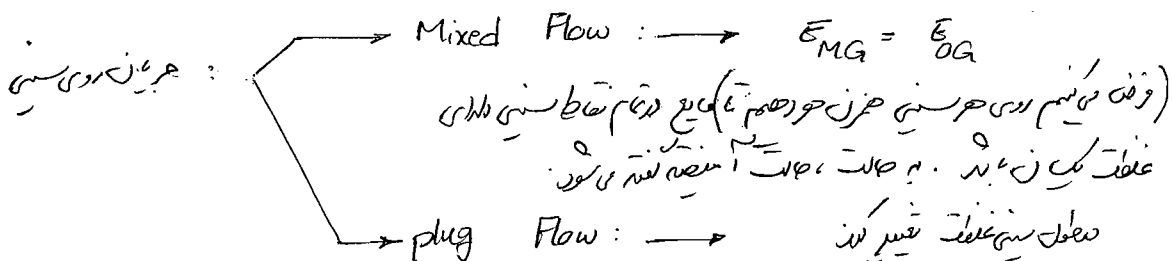 جریان روی سینی :
Mixed Flow : → E_MG = E_OG
(فرض می کنیم روی هر سینی همزن وجود دهیم تا مایع در تمام نقاط سینی دارای
غلظت یکسان باشد . به حالت ، حالت آمیخته گفته می شود.
plug Flow : → در طول سینی غلظت تغییر کند